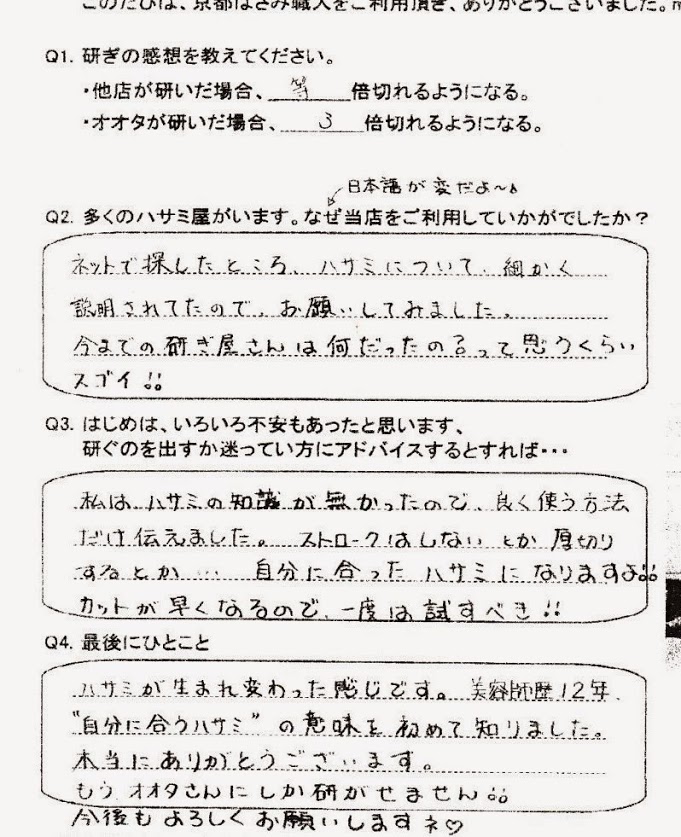 このたびは、京都はさみ職人をご利用頂き、ありがとうございました。
Q1. 研ぎの感想を教えてください。
・他店が研いだ場合、等倍切れるようになる。
・オオタが研いだ場合、3倍切れるようになる。
日本語が変だよ〜♪
Q2. 多くのハサミ屋がいます。なぜ当店をご利用していかがでしたか？
ネットで探したところ、ハサミについて、細かく
説明されてたので、お願いしてみました。
今までの研ぎ屋さんは何だったの？って思うくらい
スゴイ!!
Q3. はじめは、いろいろ不安もあったと思います、
研ぐのを出すか迷ってい方にアドバイスするとすれば・・・
私はハサミの知識が無かったので、良く使う方法
だけ伝えました。ストロークはしないとか厚切り
するとか… 自分に合ったハサミになりますよ!!
カットが早くなるので、一度は試すべき!!
Q4. 最後にひとこと
ハサミが生まれ変わった感じです。美容師歴12年、
"自分に合うハサミ"の意味を初めて知りました。
本当にありがとうございます。
もうオオタさんにしか研がせません!!
今後もよろしくお願いしますネ♡